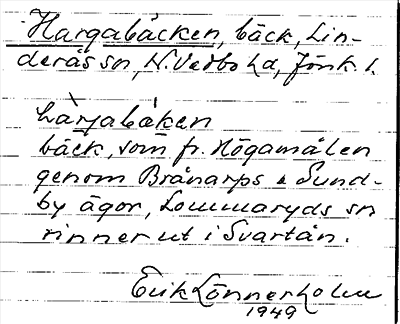 Hargabäcken, bäck, Lin-
deråssn, N. Vedbo hd, Jönk. l.
Lärjabäken
bäck, som fr. Högamålen
genom Brånarps & Sund-
by ägor, Lommaryds sn
rinner ut i Svartån.
Erik Lönnerholm
1949